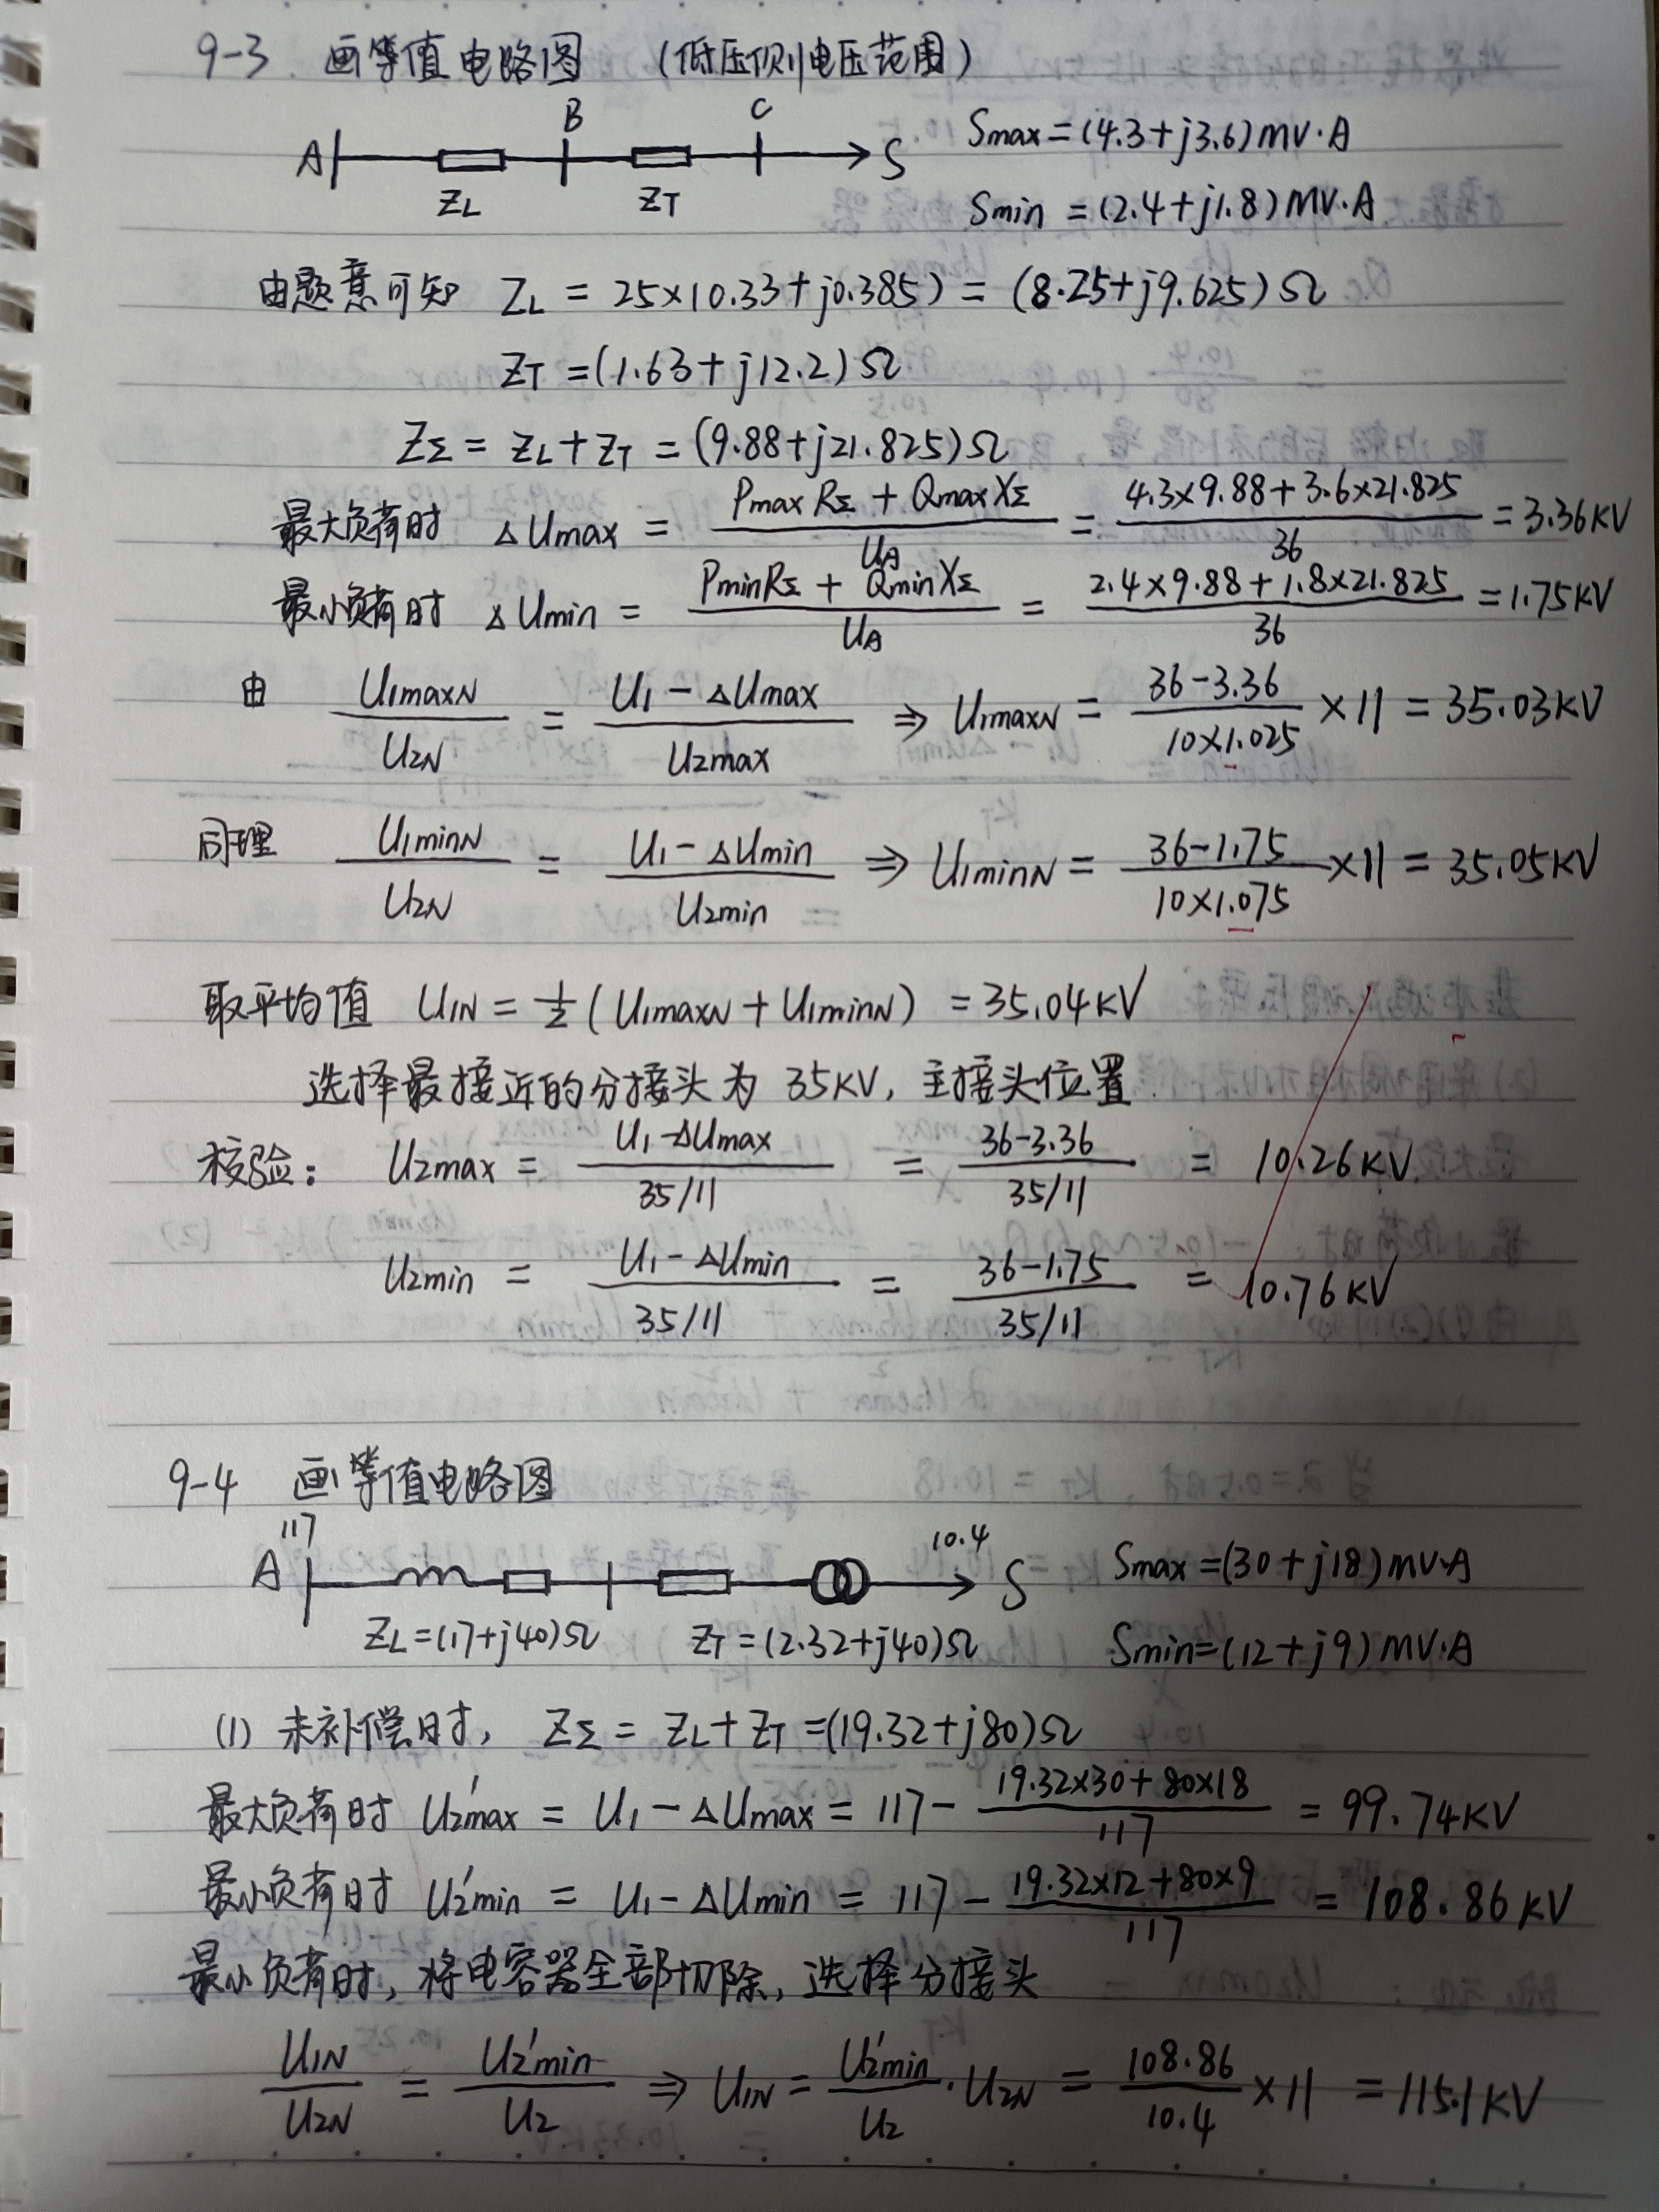 9-3 画等值电路图 (低压侧电压范围)
A B C S Smax=(4.3+j3.6)mV·A
ZL ZT Smin=(2.4+j1.8)MV·A
由题意可知 ZL = 25×10.33+j0.385) = (8.25+j9.625)Ω
ZT=(1.63+j12.2)Ω
ZΣ = ZL+ZT = (9.88+j21.825)Ω
最大负荷时 ΔUmax = (PmaxRΣ + QmaxXΣ)/UA = (4.3×9.88+3.6×21.825)/36 = 3.36KV
最小负荷时 ΔUmin = (PminRΣ + QminXΣ)/UA = (2.4×9.88+1.8×21.825)/36 = 1.75KV
由 U1maxN/U2N = (U1-ΔUmax)/U2max ⇒ U1maxN = (36-3.36)/(10×1.025) ×11 = 35.03KV
同理 U1minN/U2N = (U1-ΔUmin)/U2min ⇒ U1minN = (36-1.75)/(10×1.075) ×11 = 35.05KV
取平均值 U1N = 1/2 (U1maxN + U1minN) = 35.04KV
选择最接近的分接头为 35KV, 主接头位置
校验: U2max = (U1-ΔUmax)/(35/11) = (36-3.36)/(35/11) = 10.26KV
U2min = (U1-ΔUmin)/(35/11) = (36-1.75)/(35/11) = 10.76KV
9-4 画等值电路图
A 117 10.4 S Smax=(30+j18)mV·A
ZL=(17+j40)Ω ZT=(2.32+j40)Ω Smin=(12+j9)MV·A
(1) 未补偿时, ZΣ = ZL+ZT=(19.32+j80)Ω
最大负荷时 U2'max = U1-ΔUmax = 117 - (19.32×30+80×18)/117 = 99.74KV
最小负荷时 U2'min = U1-ΔUmin = 117 - (19.32×12+80×9)/117 = 108.86KV
最小负荷时, 将电容器全部切除, 选择分接头
U1N/U2N = U2'min/U2 ⇒ U1N = U2'min/U2 · U2N = 108.86/10.4 ×11 = 115.1KV